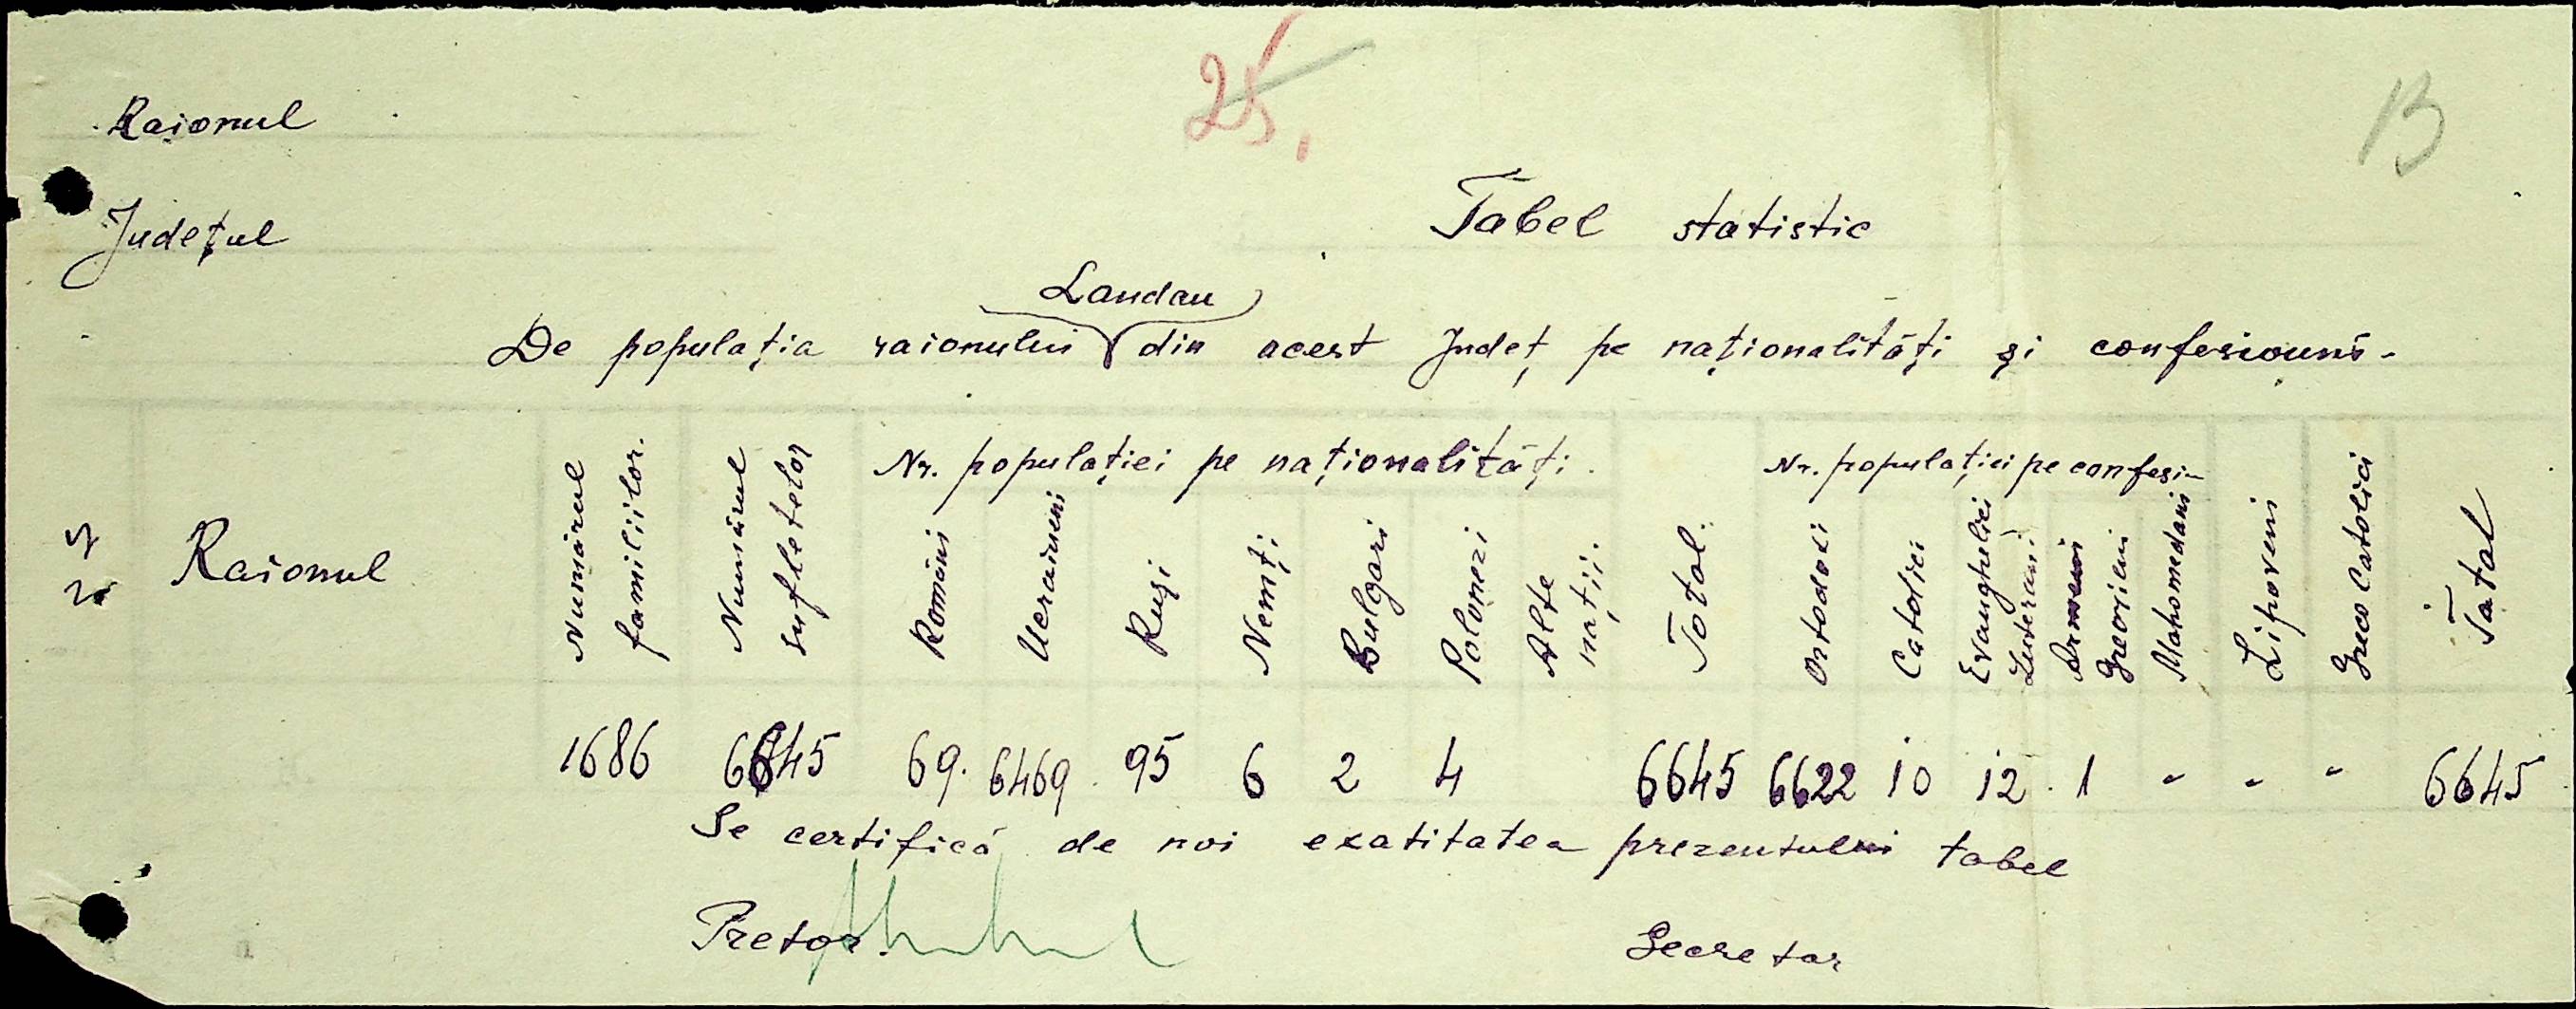 25.
13
Raionul
Județul
Tabel statistic
Landau
De populația raionului din acest Județ pe naționalități și confesiouni.
Raionul
Numărul familiilor.
Numărul sufletelor
Nr. populației pe naționalități.
Români
Ucraineni
Ruși
Nemți
Bulgari
Polonezi
Alte nații.
Total.
Nr. populației pe confesi-
Ortodoxi
Catolici
Evanghelici Luterani
Armeni Grecorieni
Mahomedani
Lipoveni
Greco Catolici
Total
1686 6645 69. 6469 95 6 2 4 6645 6622 10 12 1 - - - 6645
Se certifică de noi exatitatea prezentului tabel
Pretor.
Secretar